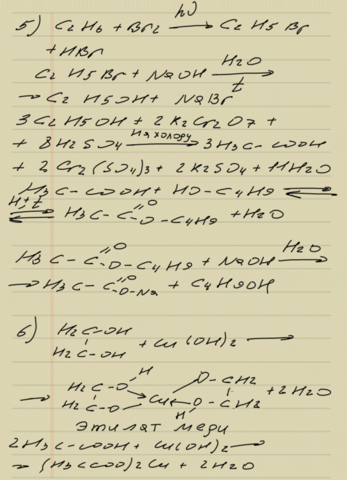 5) C2H6 + Br2 hν→ C2H5Br
+ HBr
C2H5Br + NaOH H2O t→
→ C2H5OH + NaBr
3C2H5OH + 2K2Cr2O7 +
+ 8H2SO4 на холоду→ 3H3C-COOH
+ 2Cr2(SO4)3 + 2K2SO4 + 11H2O
H3C-COOH + HO-C4H9 ⇌
H+,t ⇌ H3C-C=O O-C4H9 + H2O
H3C-C=O O-C4H9 + NaOH H2O→
→ H3C-C=O O-Na + C4H9OH
6) H2C-OH H2C-OH + Cu(OH)2 →
→ H2C-O H H2C-O Cu O-CH2 H O-CH2 + 2H2O
этилат меди
2H3C-COOH + Cu(OH)2 →
→ (H3CCOO)2Cu + 2H2O